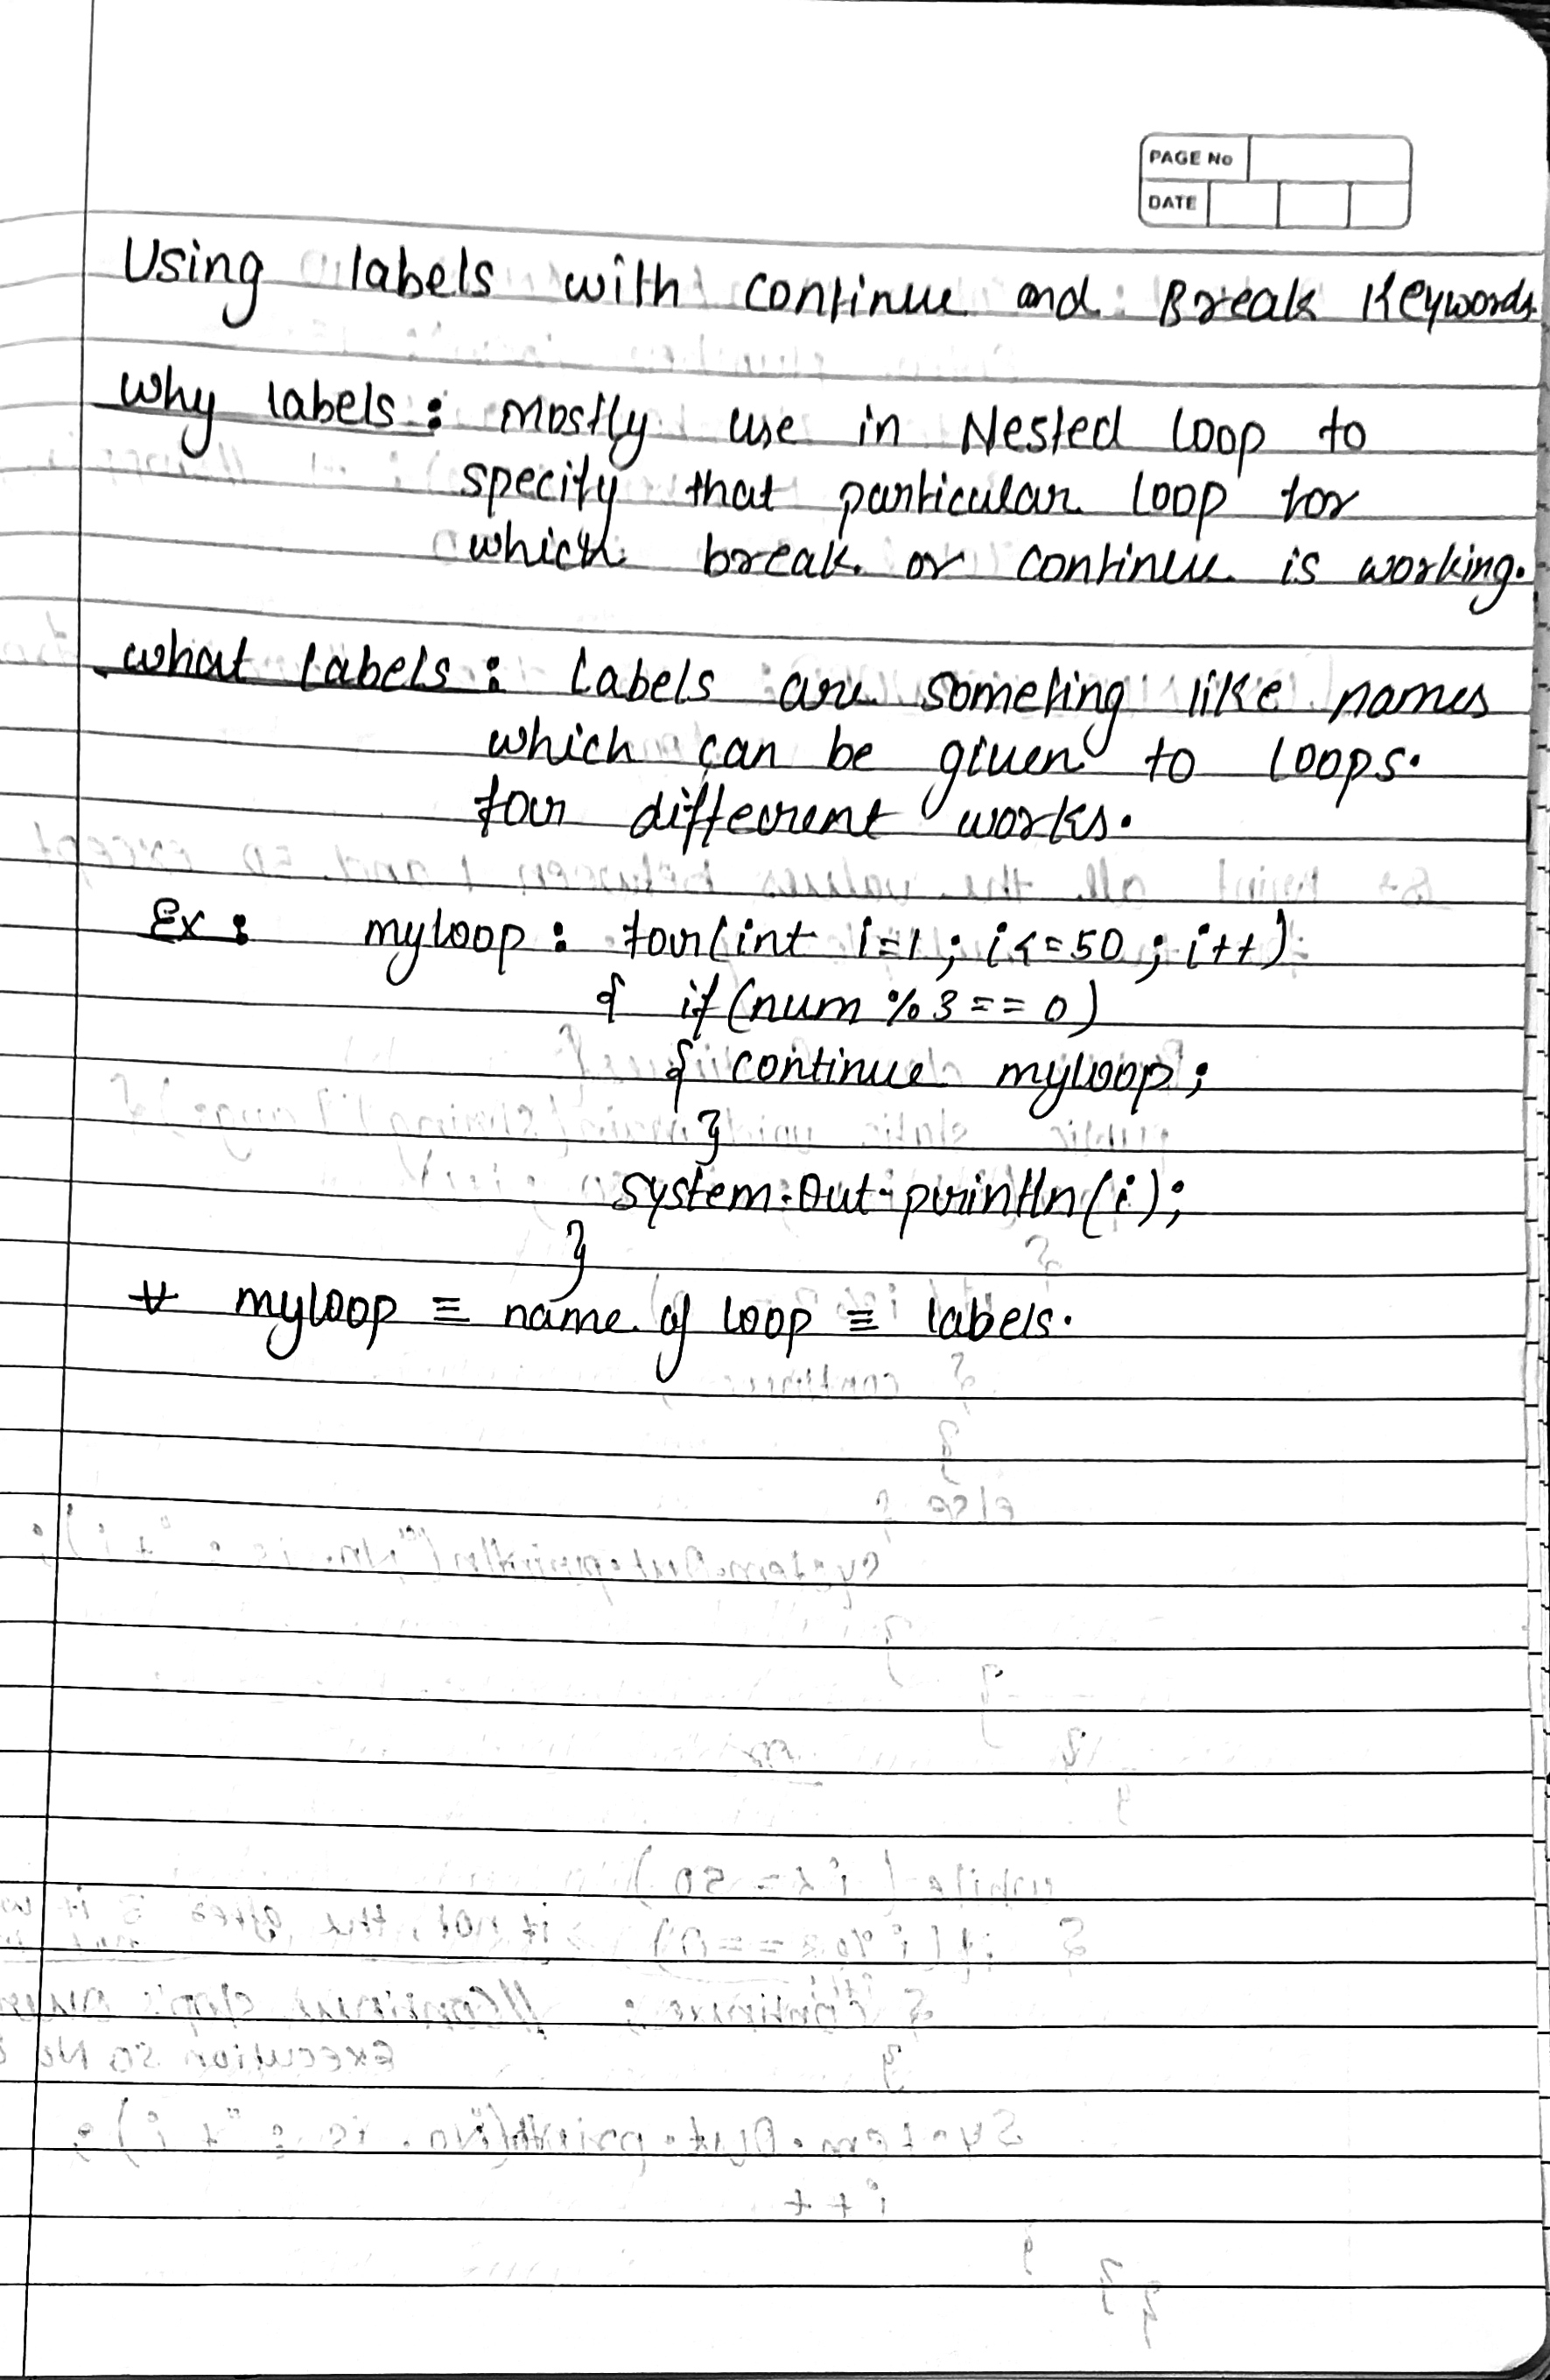 PAGE No
DATE
Using labels with continue and Break Keywords.
why labels : mostly use in Nested loop to
specify that particular loop for
which break or continue is working.
what labels : labels are someting like names
which can be given to loops.
for different works.
Ex : myloop : for(int i=1 ; i<=50 ; i++)
{ if (num % 3 == 0)
{ continue myloop ;
}
system.out.println(i);
}
* myloop ≡ name of loop ≡ labels.